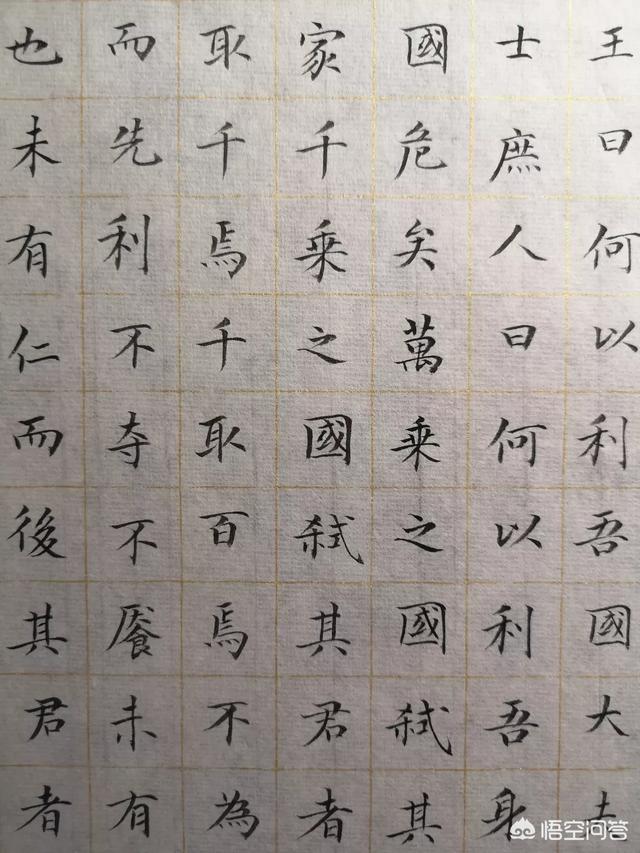 王曰何以利吾國大夫
士庶人曰何以利吾身
國危矣萬乘之國弒其
家千乘之國弒其君者
取千焉千取百焉不為
而先利不夺不饜未有
也未有仁而後其君者
悟空问答